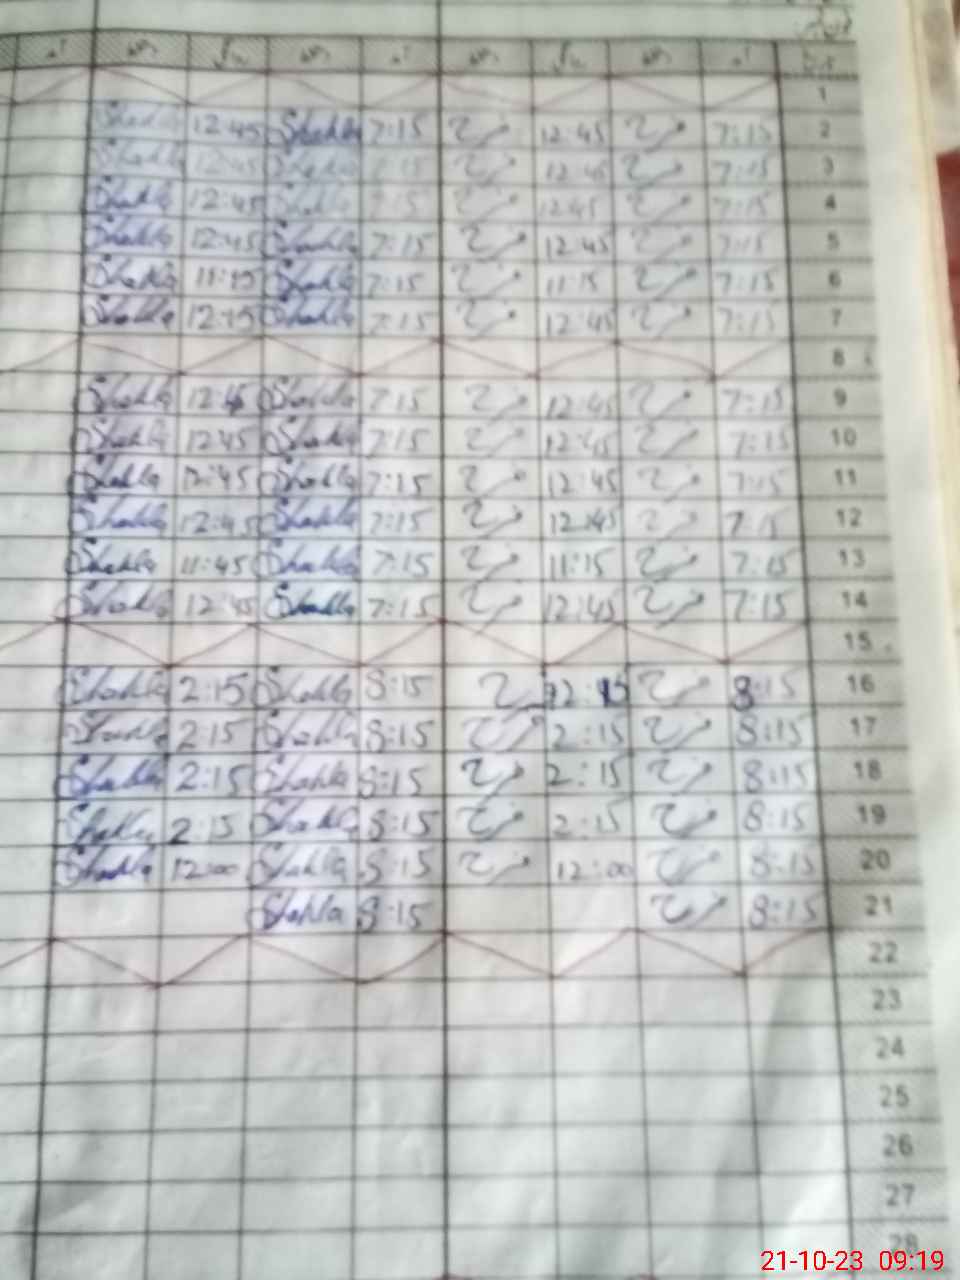 1
2 7:15 فرح 12:45 فرح 7:15 Shahla 12:45 Shahla
3 7:15 فرح 12:45 فرح 7:15 Shahla 12:45 Shahla
4 7:15 فرح 12:45 فرح 7:15 Shahla 12:45 Shahla
5 7:15 فرح 12:45 فرح 7:15 Shahla 12:45 Shahla
6 7:15 فرح 11:15 فرح 7:15 Shahla 11:15 Shahla
7 7:15 فرح 12:45 فرح 7:15 Shahla 12:45 Shahla
8
9 7:15 فرح 12:45 فرح 7:15 Shahla 12:45 Shahla
10 7:15 فرح 12:45 فرح 7:15 Shahla 12:45 Shahla
11 7:15 فرح 12:45 فرح 7:15 Shahla 12:45 Shahla
12 7:15 فرح 12:45 فرح 7:15 Shahla 12:45 Shahla
13 7:15 فرح 11:15 فرح 7:15 Shahla 11:45 Shahla
14 7:15 فرح 12:45 فرح 7:15 Shahla 12:45 Shahla
15
16 8:15 فرح 12:15 فرح 8:15 Shahla 2:15 Shahla
17 8:15 فرح 2:15 فرح 8:15 Shahla 2:15 Shahla
18 8:15 فرح 2:15 فرح 8:15 Shahla 2:15 Shahla
19 8:15 فرح 2:15 فرح 8:15 Shahla 2:15 Shahla
20 8:15 فرح 12:00 فرح 8:15 Shahla 12:00 Shahla
21 8:15 فرح 8:15 Shahla
22
23
24
25
26
27
28
21-10-23 09:19